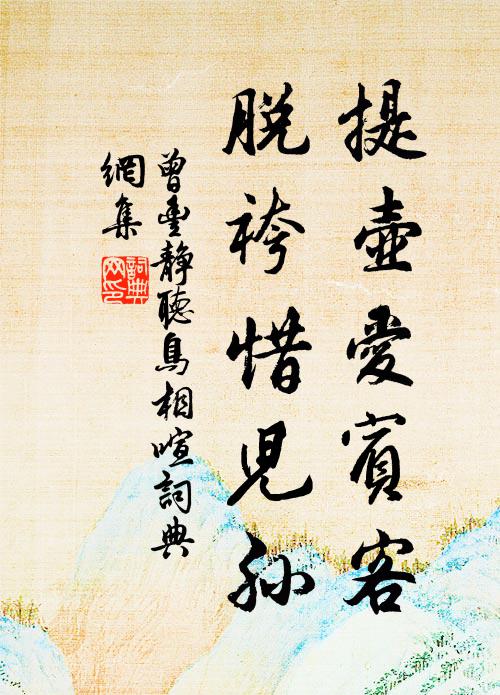 提壺愛賓客
脫袴惜兒孫
曾豊靜聽鳥相喧詞典
網集
詞典
网印